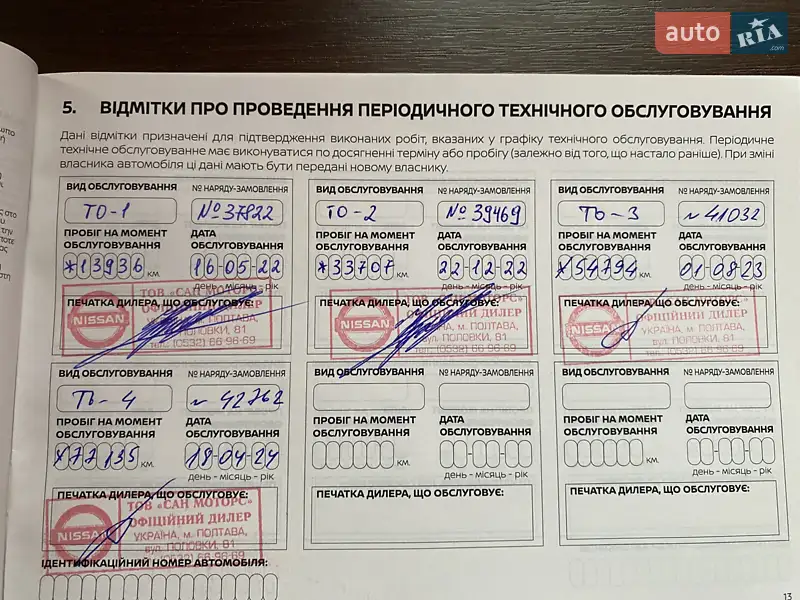 auto RIA
.com
5. ВІДМІТКИ ПРО ПРОВЕДЕННЯ ПЕРІОДИЧНОГО ТЕХНІЧНОГО ОБСЛУГОВУВАННЯ
Дані відмітки призначені для підтвердження виконаних робіт, вказаних у графіку технічного обслуговування. Періодичне
технічне обслуговування має виконуватися по досягненні терміну або пробігу (залежно від того, що настало раніше). При зміні
власника автомобіля ці дані мають бути передані новому власнику.
ВИД ОБСЛУГОВУВАННЯ № НАРЯДУ-ЗАМОВЛЕННЯ
ТО-1 №37822
ПРОБІГ НА МОМЕНТ ОБСЛУГОВУВАННЯ ДАТА ОБСЛУГОВУВАННЯ
*13936 км. 16-05-22
день - місяць - рік
ПЕЧАТКА ДИЛЕРА, ЩО ОБСЛУГОВУЄ:
ТОВ «САН МОТОРС»
ОФІЦІЙНИЙ ДИЛЕР
NISSAN
УКРАЇНА, м. ПОЛТАВА,
вул. ПОЛОВКИ, 81
тел. (0532) 66-96-69
ВИД ОБСЛУГОВУВАННЯ № НАРЯДУ-ЗАМОВЛЕННЯ
ТО-2 №39469
ПРОБІГ НА МОМЕНТ ОБСЛУГОВУВАННЯ ДАТА ОБСЛУГОВУВАННЯ
*33707 км. 22-12-22
день - місяць - рік
ПЕЧАТКА ДИЛЕРА, ЩО ОБСЛУГОВУЄ:
ОФІЦІЙНИЙ ДИЛЕР
NISSAN
УКРАЇНА, м. ПОЛТАВА,
вул. ПОЛОВКИ, 81
тел. (0532) 66-96-69
ВИД ОБСЛУГОВУВАННЯ № НАРЯДУ-ЗАМОВЛЕННЯ
ТО-3 №41032
ПРОБІГ НА МОМЕНТ ОБСЛУГОВУВАННЯ ДАТА ОБСЛУГОВУВАННЯ
*54794 км. 01-08-23
день - місяць - рік
ПЕЧАТКА ДИЛЕРА, ЩО ОБСЛУГОВУЄ:
ОФІЦІЙНИЙ ДИЛЕР
NISSAN
УКРАЇНА, м. ПОЛТАВА,
вул. ПОЛОВКИ, 81
тел. (0532) 66-96-69
ВИД ОБСЛУГОВУВАННЯ № НАРЯДУ-ЗАМОВЛЕННЯ
ТО-4 №42762
ПРОБІГ НА МОМЕНТ ОБСЛУГОВУВАННЯ ДАТА ОБСЛУГОВУВАННЯ
*77135 км. 18-04-24
день - місяць - рік
ПЕЧАТКА ДИЛЕРА, ЩО ОБСЛУГОВУЄ:
ТОВ «САН МОТОРС»
ОФІЦІЙНИЙ ДИЛЕР
NISSAN
УКРАЇНА, м. ПОЛТАВА,
вул. ПОЛОВКИ, 81
(0532) 66-96-69
ВИД ОБСЛУГОВУВАННЯ № НАРЯДУ-ЗАМОВЛЕННЯ
ПРОБІГ НА МОМЕНТ ОБСЛУГОВУВАННЯ ДАТА ОБСЛУГОВУВАННЯ
км.
день - місяць - рік
ПЕЧАТКА ДИЛЕРА, ЩО ОБСЛУГОВУЄ:
ВИД ОБСЛУГОВУВАННЯ № НАРЯДУ-ЗАМОВЛЕННЯ
ПРОБІГ НА МОМЕНТ ОБСЛУГОВУВАННЯ ДАТА ОБСЛУГОВУВАННЯ
км.
день - місяць - рік
ПЕЧАТКА ДИЛЕРА, ЩО ОБСЛУГОВУЄ:
ІДЕНТИФІКАЦІЙНИЙ НОМЕР АВТОМОБІЛЯ:
13